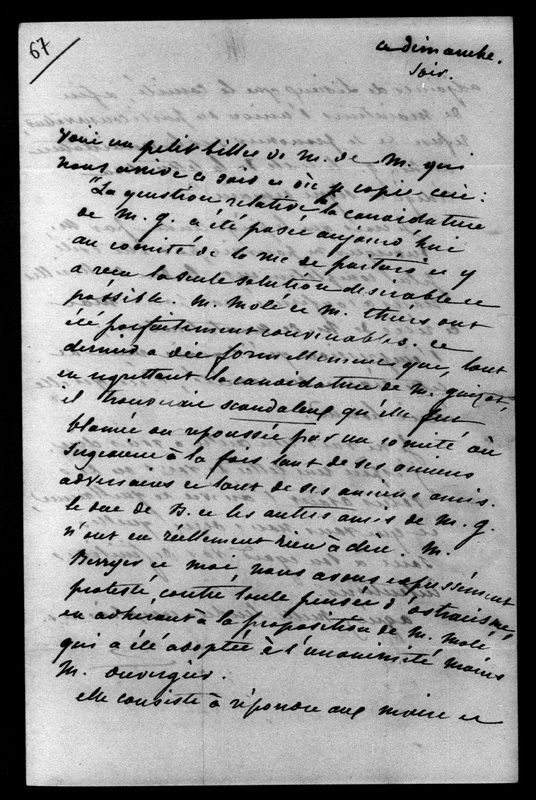 67
ce dimanche.
soir.
Voici un petit billet de M. de M. qui
nous arrive ce soir et que je copie ici :
"La question relative à la candidature
de M. G. a été posée aujourd'hui
au comité de la rue de Poitiers et y
a reçu la seule solution désirable et
possible. M. Molé et M. Thiers ont
été parfaitement convenables. Ce
dernier a dit formellement que, tout
en regrettant la candidature de M. Guizot,
il trouverait scandaleux qu'elle fut
blamée ou repoussée par un comité où
siegeaient à la fois tant de ses anciens
adversaires et tant de ses anciens amis.
Le duc de B. et les autres amis de M. G.
n'ont eu réellement rien à dire. M.
Berryer et moi, nous avons expressément
protesté contre toute pensée d'ostracisme
en adhérant à la proposition de M. Molé
qui a été adoptée à l'unanimité moins
M. Duvergier.
Elle consiste à répondre aux maires et